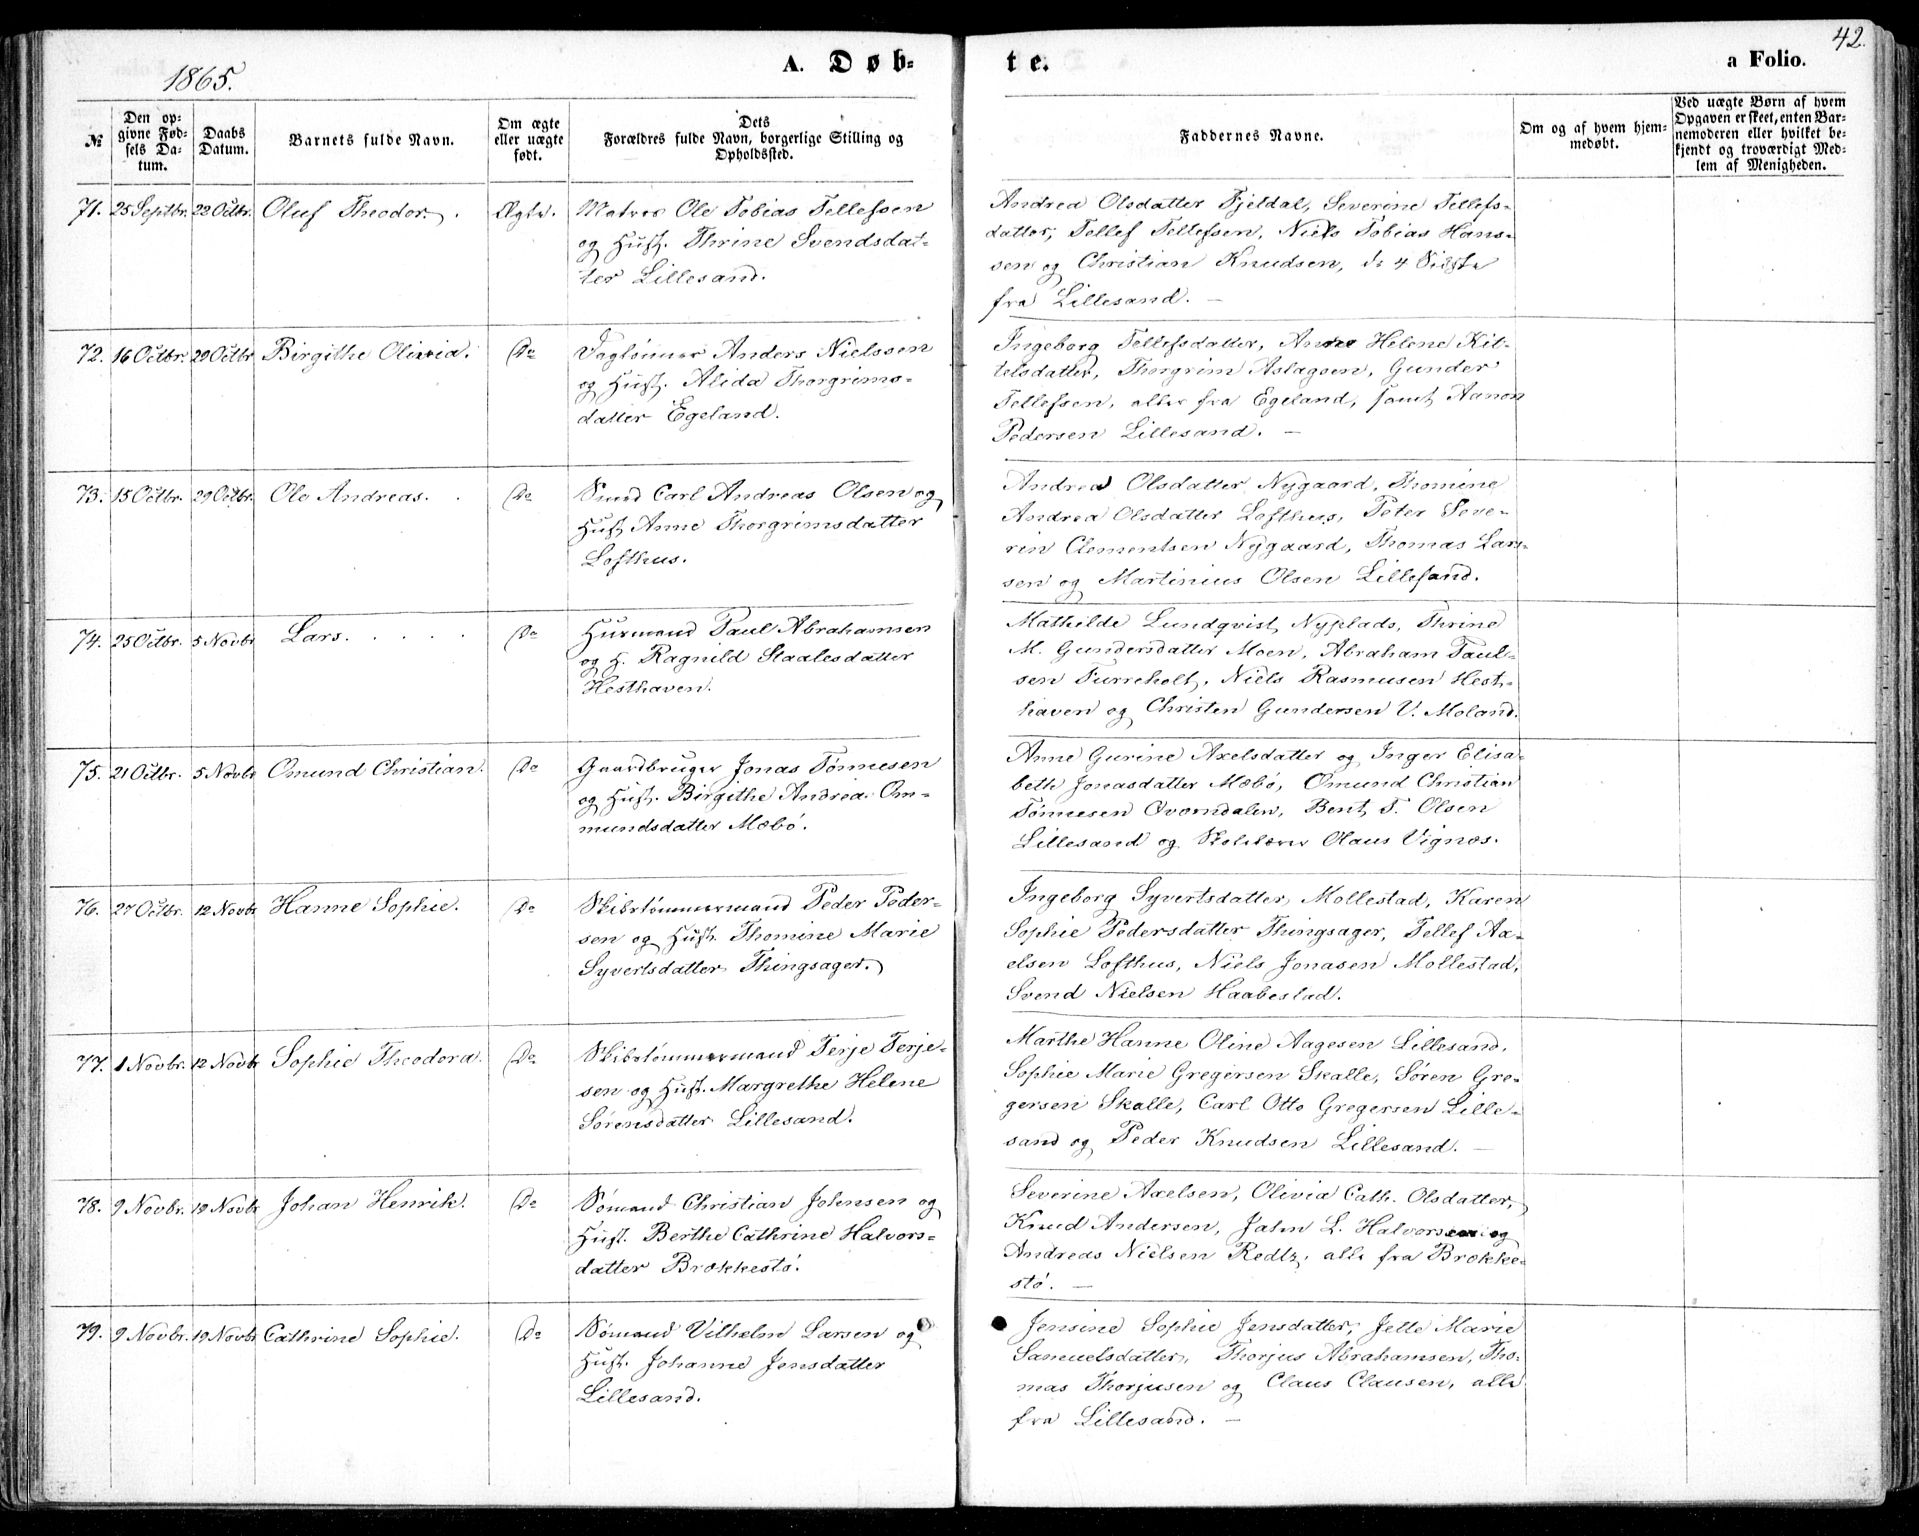 42.
1865.
A. Døb-
te.
a Folio.
№
Den op-
givne Fød-
sels Da-
tum.
Daabs
Datum.
Barnets fulde Navn.
Om ægte
eller uægte
født.
Dets
Forældres fulde Navn, borgerlige Stilling og
Opholdssted.
Faddernes Navne.
Om og af hvem hjem-
medøbt.
Ved uægte Børn af hvem
Opgaven er skeet, enten Bar-
nemoderen eller hvilket be-
kjendt og troværdigt Med-
lem af Menigheden.
71. 25 Septbr. 22 Octbr. Oluf Theodor. Ægte.
Matros Ole Tobias Tellefsen
og Hust. Thrine Svendsdat-
ter Lillesand.
Andrea Olsdatter Fjeldal, Severine Tellefs-
datter, Tellef Tellefsen, Niels Tobias Hans-
sen og Christian Knudsen, de 4 Sidste
fra Lillesand. —
72. 16 Octbr. 29 Octbr Birgithe Olivia. Do
Daglønner Anders Nielssen
og Hust. Alida Thorgrims-
datter Egeland.
Ingeborg Tellefsdatter, Anne Helene Kit-
telsdatter, Thorgrim Aslagsen, Gunder
Tellefsen, alle fra Egeland, samt Aanon
Pedersen Lillesand. —
73. 15 Octbr. 29 Octbr. Ole Andreas. Do
Smed Carl Andreas Olsen og
Hust Anne Thorgrimsdatter
Lofthus.
Andrea Olsdatter Nygaard, Thomine
Andrea Olsdatter Lofthus, Peter Seve-
rin Clementsen Nygaard, Thomas Lars-
sen og Martinius Olsen Lillesand.
74. 25 Octbr. 5 Novbr Lars. . . . . Do
Husmand Paul Abrahamsen
og H. Ragnild Staalesdatter
Hesthaven.
Mathilde Lundqvist Nyplads, Thrine
M. Gundersdatter Moen, Abraham Paul-
sen Furreholt, Niels Rasmusen Hest-
haven og Christen Gundersen V. Moland.
75. 21 Octbr. 5 Novbr Omund Christian. Do
Gaardbruger Jonas Tønnesen
og Hust. Birgithe Andrea Om-
mundsdatter Mæbø.
Anne Gurine Axelsdatter og Inger Elisa-
beth Jonasdatter Mæbø, Omund Christian
Tønnesen Øverndalen, Bent T. Olsen
Lillesand og Skolelærer Olaus Vignæs.
76. 27 Octbr. 12 Novbr Hanne Sophie. Do
Skibstømmermand Peder Peder-
sen og Hust. Thomine Marie
Syvertsdatter Thingsager.
Ingeborg Syvertsdatter Mollestad, Karen
Sophie Pedersdatter Thingsager, Tellef Ax-
elsen Lofthus, Niels Jonasen Mollestad,
Svend Nielsen Haabestad.
77. 1 Novbr. 12 Novbr Sophie Theodora. Do
Skibstømmermand Terje Terje-
sen og Hust. Margrethe Helene
Sørensdatter Lillesand.
Marthe Hanne Oline Aagesen Lillesand,
Sophie Marie Gregersen Skalle, Søren Gre-
gersen Skalle, Carl Otto Gregersen Lille-
sand og Peder Knudsen Lillesand. —
78. 9 Novbr. 19 Novbr Johan Henrik. Do
Sømand Christian Johnsen og
Hust. Berthe Cathrine Halvors-
datter Brækkestø.
Severine Axelsen, Olivia Cath. Olsdatter,
Knud Andersen, Jahn L. Halvorsen og
Andreas Nielsen Redtz, alle fra Brække-
stø. —
79. 9 Novbr. 19 Novbr Cathrine Sophie. Do
Sømand Vilhelm Larsen og
Hust. Johanne Jensdatter
Lillesand.
Jensine Sophie Jensdatter, Jelle Marie
Samuelsdatter, Thorjus Abrahamsen, Tho-
mas Thorjusen og Claus Clausen, alle
fra Lillesand. —